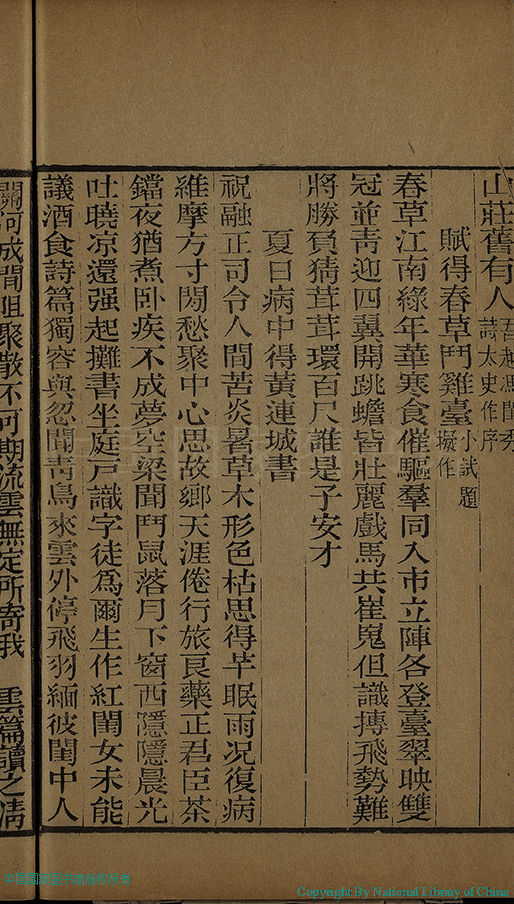 山莊舊有人吾越馮閨秀詩太史作序
賦得春草鬥雞臺小試題擬作
春草江南綠年華寒食催驅羣同入市立陣各登臺翠映雙
冠並靑迎四翼開跳蟾皆壯麗戲馬共崔嵬但識摶飛勢難
將勝負猜茸茸環百尺誰是子安才
夏日病中得黃連城書
祝融正司令人間苦炎暑草木形色枯思得芉眠雨况復病
維摩方寸閟愁聚中心思故鄉天涯倦行旅良藥正君臣茶
鐺夜猶煮卧疾不成夢空梁聞鬥鼠落月下窗西隱隱晨光
吐曉凉還强起攤書坐庭戸識字徒爲爾生作紅閨女未能
議酒食詩篇獨容與忽聞靑鳥來雲外停飛羽緬彼閨中人
關河成間阻聚散不可期流雲無定所寄我 雲篇讀之淸
Copyright By National Library of China